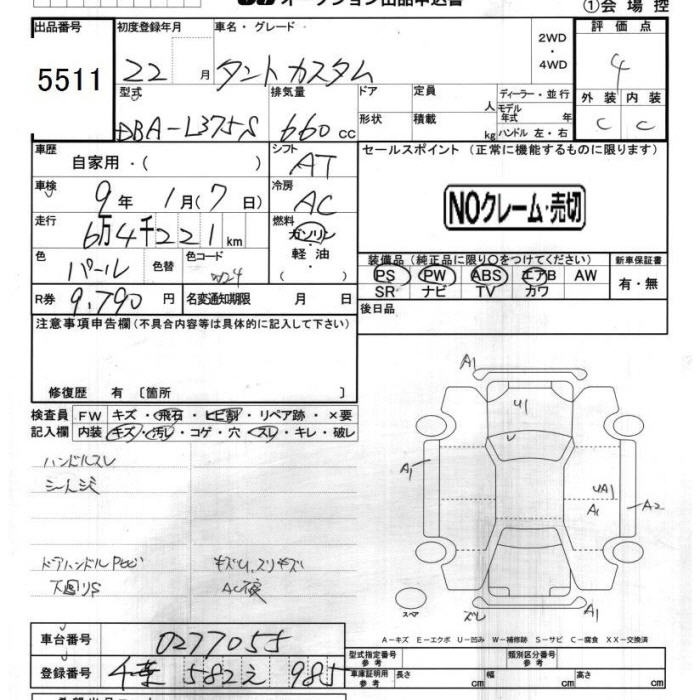 オークション出品申込書
①会場控
出品番号
5511
初度登録年月
22 月
車名・グレード
タントカスタム
2WD
・
4WD
評価点
4
外装 内装
C C
型式
DBA-L375S
排気量
660 cc
ドア
形状
定員
人
積載
kg
ディーラー・並行
モデル
年式 年
ハンドル 左・右
車歴
自家用・( )
シフト
AT
セールスポイント (正常に機能するものに限ります)
NOクレーム・売切
車検
9年 1月(7日)
冷房
AC
走行
6万4千221km
燃料
ガソリン
・
軽油
・
( )
色
パール
色替
色コード
W24
装備品(純正品に限り○をつけてください)
PS PW ABS エアB AW
SR ナビ TV カワ
新車保証書
有・無
R券 9,790円
名変通知期限 月 日
後日品
注意事項申告欄(不具合内容等は具体的に記入して下さい)
修復歴 有 〔箇所 〕
検査員
記入欄
FW キズ・飛石・ヒビ割・リペア跡・×要
内装 キズ・汚レ・コゲ・穴・スレ・キレ・破レ
ハンドルスレ
ドアハンドル
下廻りS
A1
U1
U
A1
UA1
A1
A2
スペア
ズレ
A1
A-キズ E-エクボ U-凹み W-補修跡 S-サビ C-腐食 XX-交換済
車台番号
0277055
登録番号
千葉 582え 985
型式指定番号
参考
類別区分番号
参考
車庫証明用
参考
長さ cm
幅 cm
高さ cm